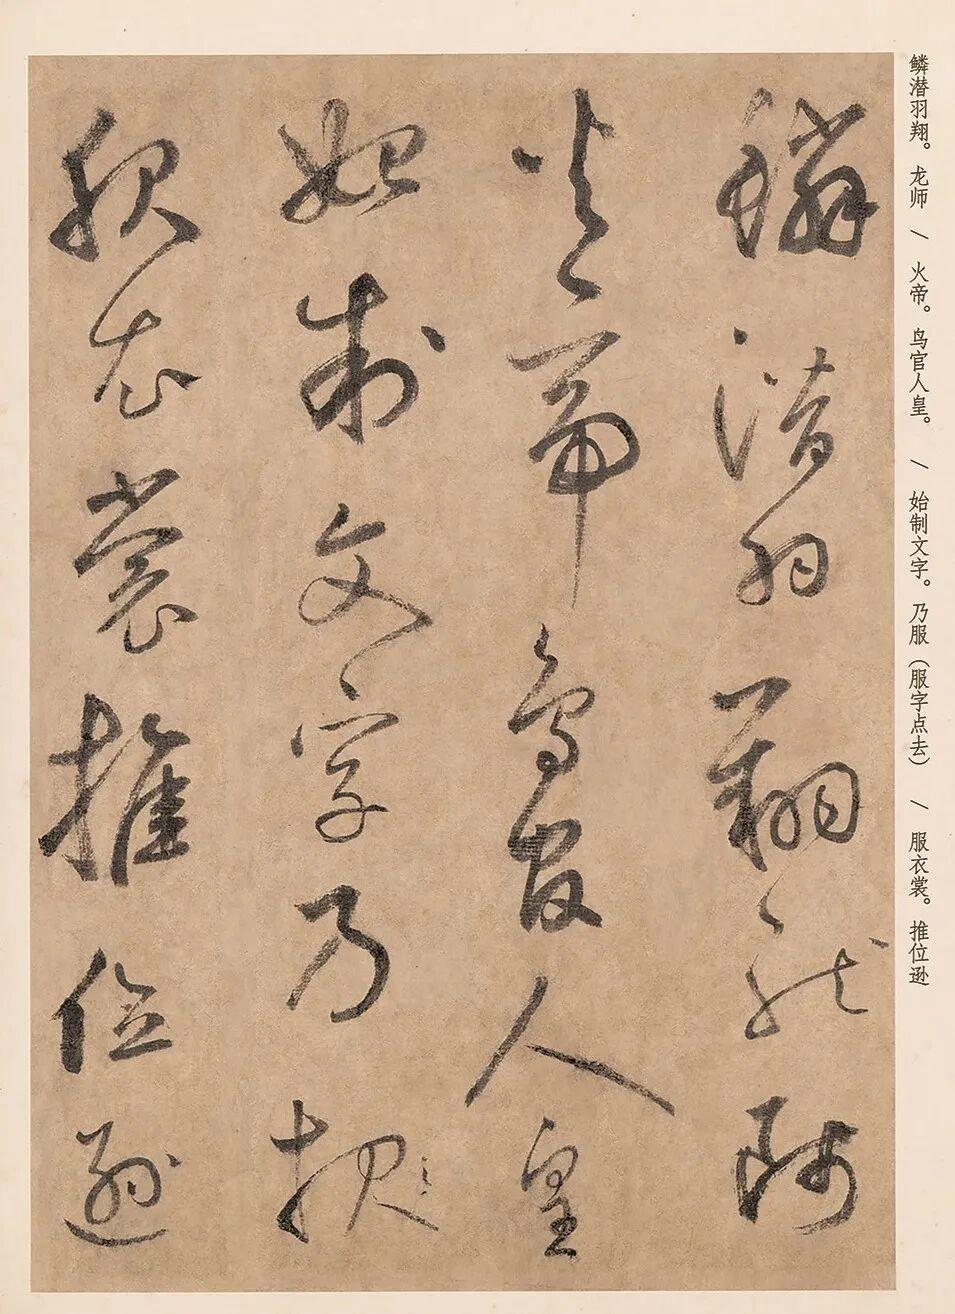 鳞潜羽翔龙师
火帝鸟官人皇
始制文字乃服
服衣裳推位逊
鳞潜羽翔。龙师 \ 火帝。鸟官人皇。 \ 始制文字。乃服（服字点去） \ 服衣裳。推位逊